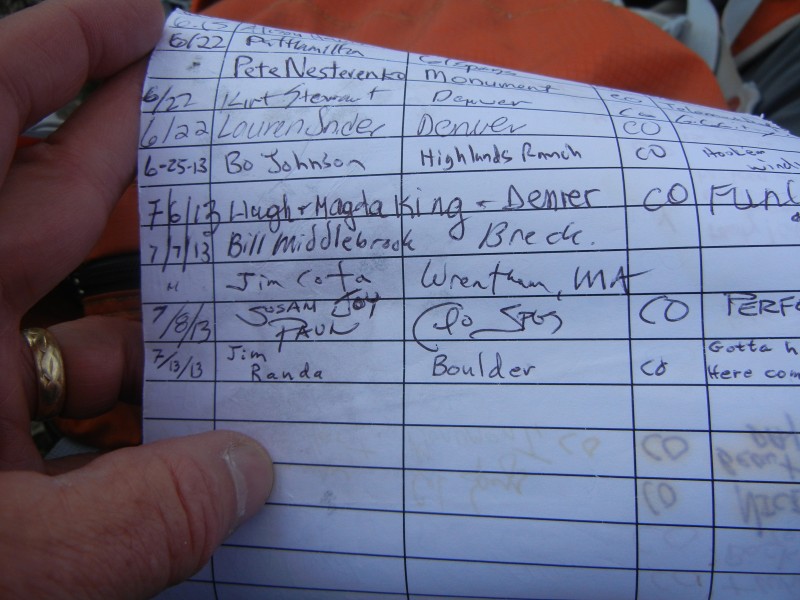 6/22 Pat Hamilton
Pete Nesterenko Monument
6/22 Kurt Stewart Denver CO
6/22 Lauren Snider Denver CO
6-25-13 Bo Johnson Highlands Ranch CO
7/6/13 Hugh + Magda King - Denver CO FUN
7/7/13 Bill Middlebrook Breck.
" Jim Cota Wrentham, MA
7/8/13 SUSAN JOY PAUL Co Spgs CO PERFE
7/13/13 Jim Randa Boulder CO Gotta h
Here com